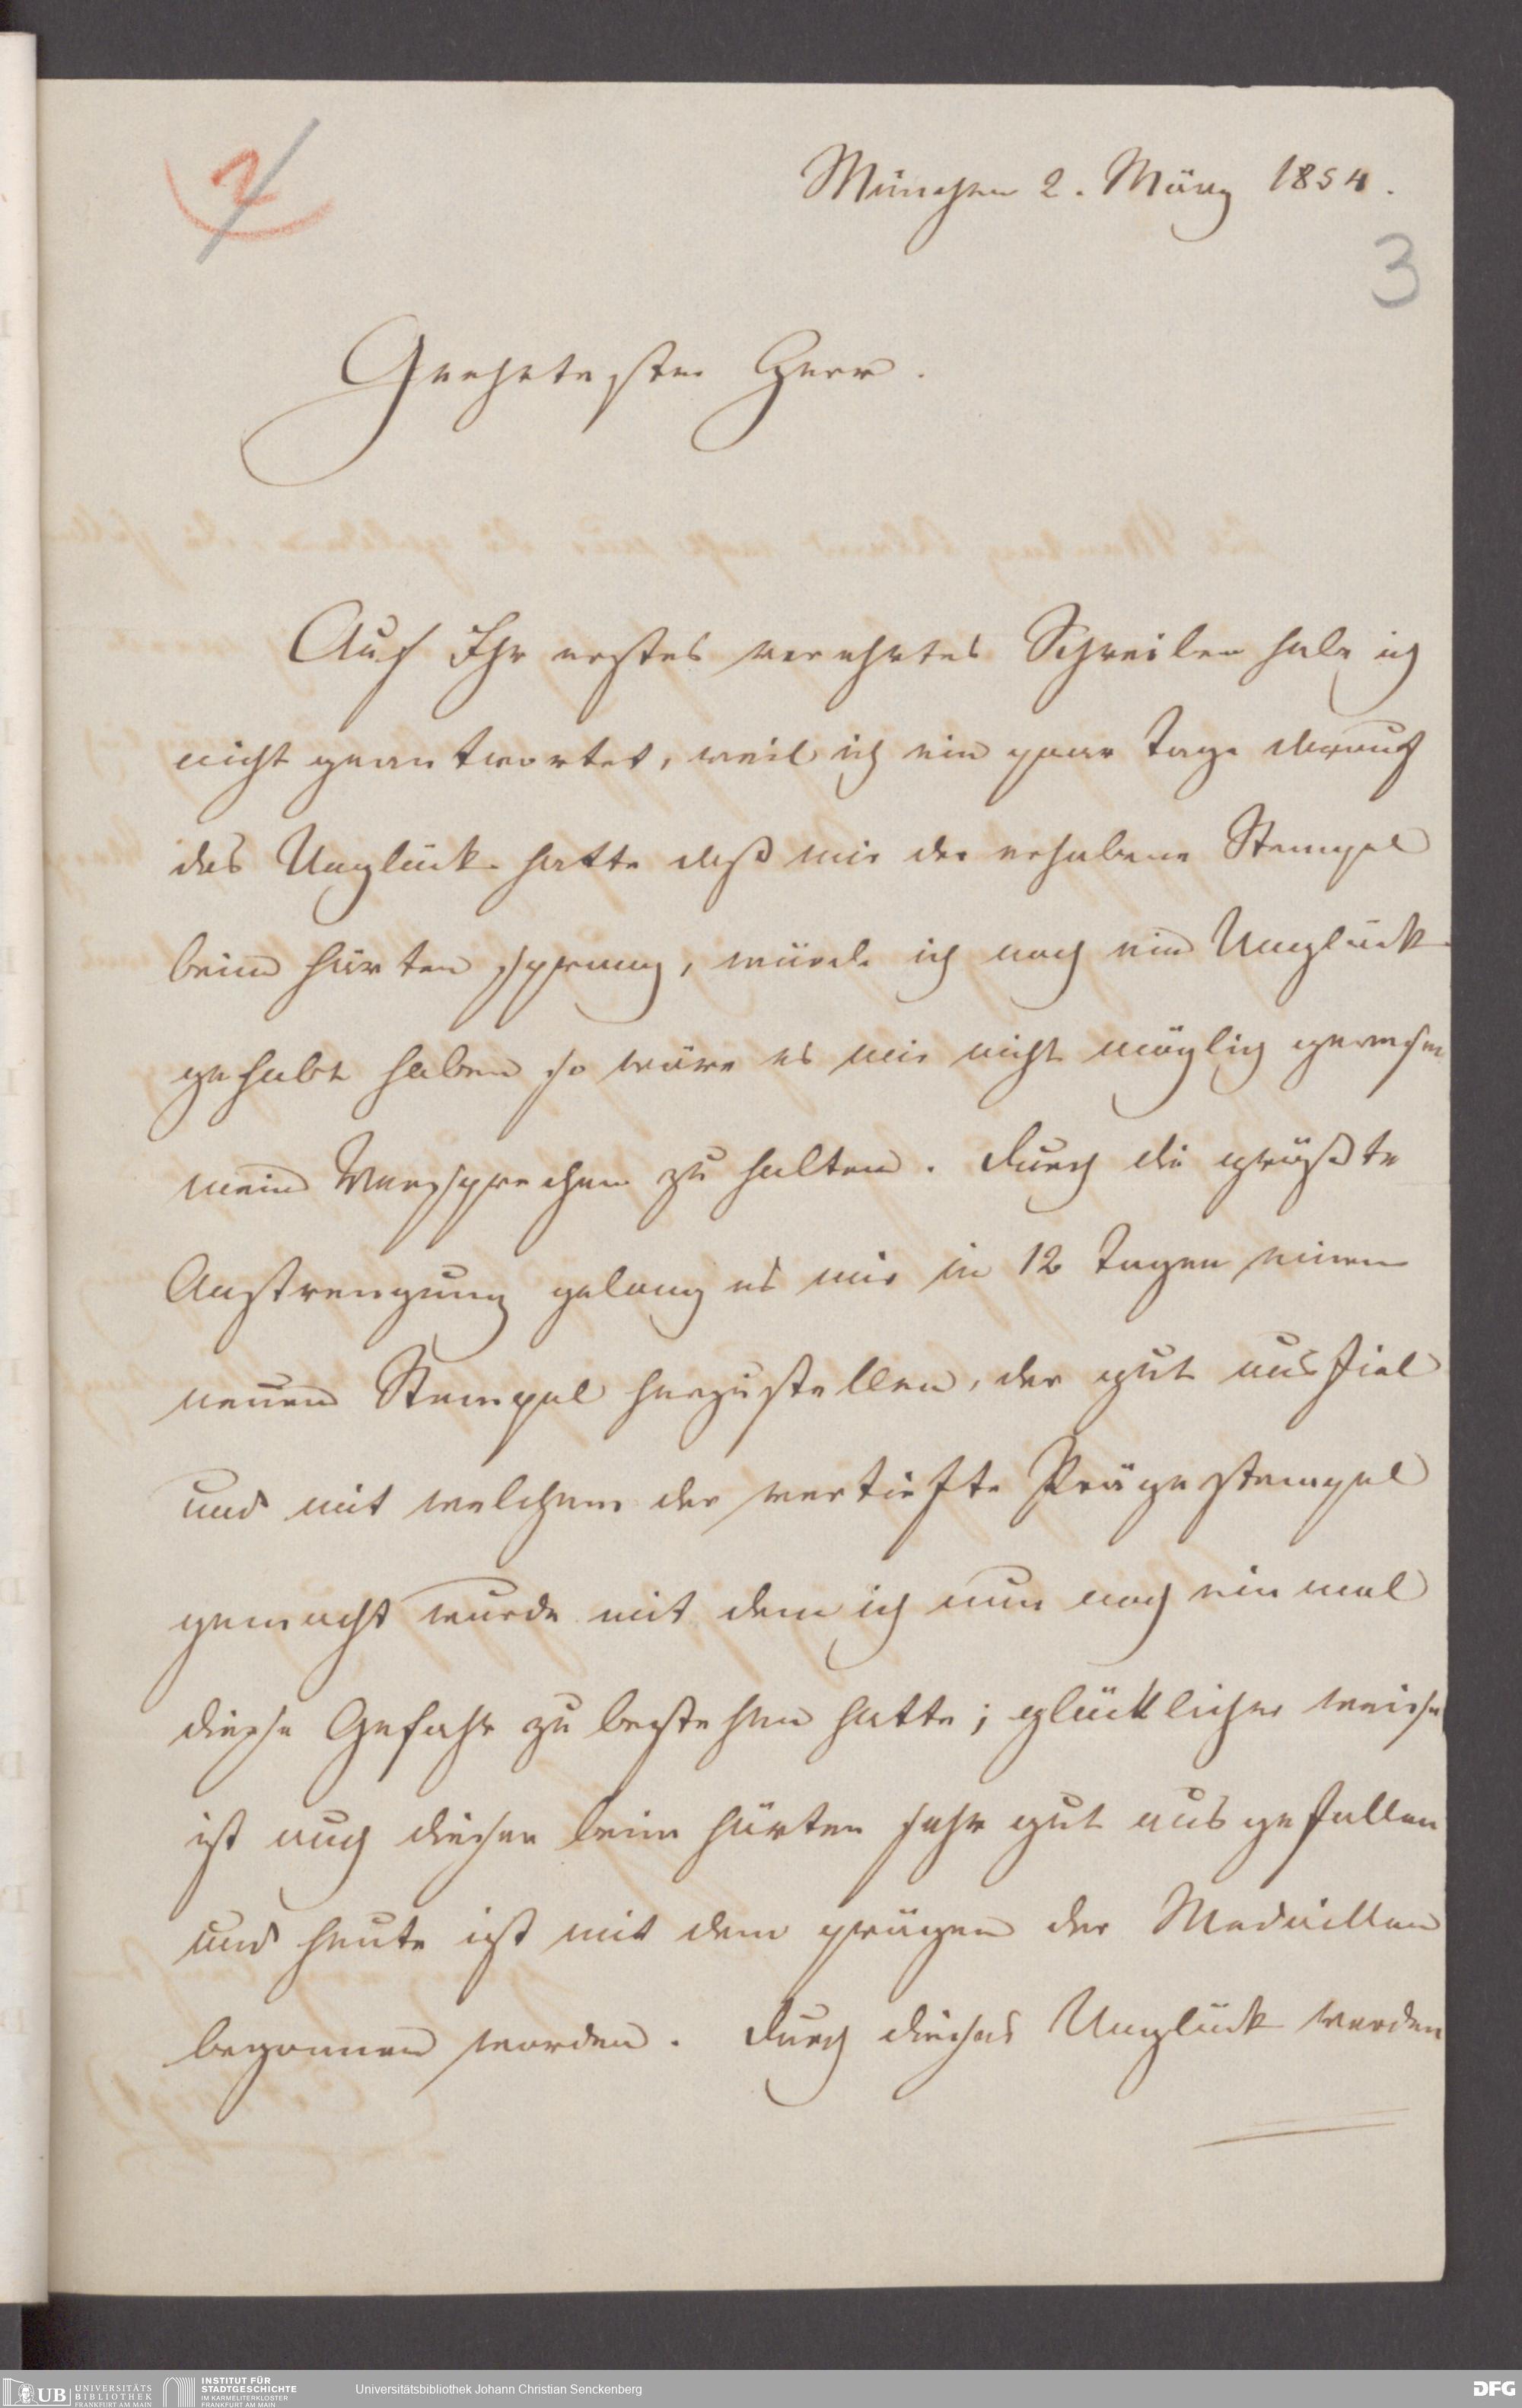 2
München 2. März 1854.
3
Geehrtester Herr.
Auf Ihr erstes verehrtes Schreiben habe ich
nicht geantwortet, weil ich ein paar Tage darauf
das Unglück hatte daß mir der erhabene Stempel
beim härten sprang, würde ich noch ein Unglück
gehabt haben so wäre es mir nicht möglich gewesen
mein Versprechen zu halten. Durch die größte
Anstrengung gelang es mir in 12 Tagen einen
neuen Stempel herzustellen, der gut ausfiel
und mit welchem der vertiefte Prägestempel
gemacht wurde mit dem ich nun noch ein mal
diese Gefahr zu bestehen hatte; glücklicher weise
ist auch dieser beim härten sehr gut ausgefallen
und heute ist mit dem prägen der Medaillen
begonnen worden. Durch dieses Unglück werden
UB UNIVERSITÄTS BIBLIOTHEK FRANKFURT AM MAIN
INSTITUT FÜR STADTGESCHICHTE IM KARMELITERKLOSTER FRANKFURT AM MAIN
Universitätsbibliothek Johann Christian Senckenberg
DFG